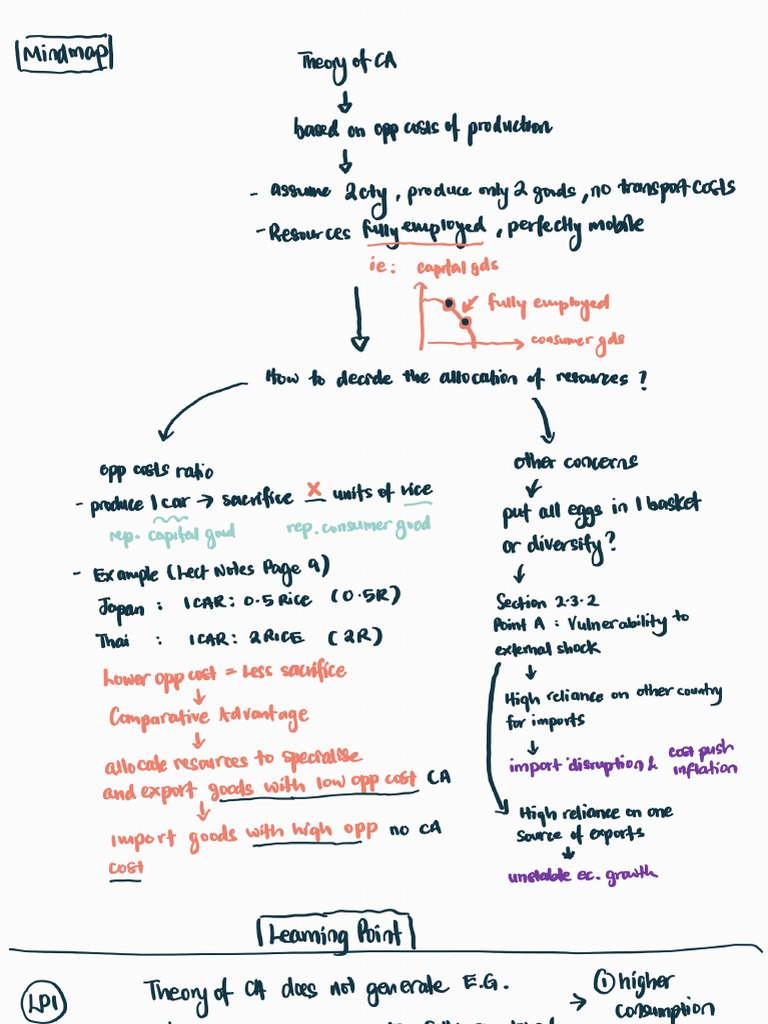 Mindmap
Theory of CA
based on opp costs of production
- assume 2 cty, produce only 2 goods, no transport costs
- Resources fully employed, perfectly mobile
ie: capital gds
fully employed
consumer gds
How to decide the allocation of resources?
opp costs ratio
- produce 1 car → sacrifice X units of rice
rep. capital good rep. consumer good
- Example (Lect Notes Page 9)
Japan : 1 CAR: 0.5 RICE (0.5R)
Thai : 1 CAR: 2 RICE (2R)
Lower opp cost = Less sacrifice
Comparative Advantage
allocate resources to specialise
and export goods with low opp cost CA
import goods with high opp no CA
cost
other concerns
put all eggs in 1 basket
or diversify?
Section 2.3.2
Point A : Vulnerability to
external shock
High reliance on other country
for imports
import disruption & cost push
inflation
High reliance on one
source of exports
unstable ec. growth
Learning Point
LP1
Theory of CA does not generate E.G.
→ ① higher
consumption